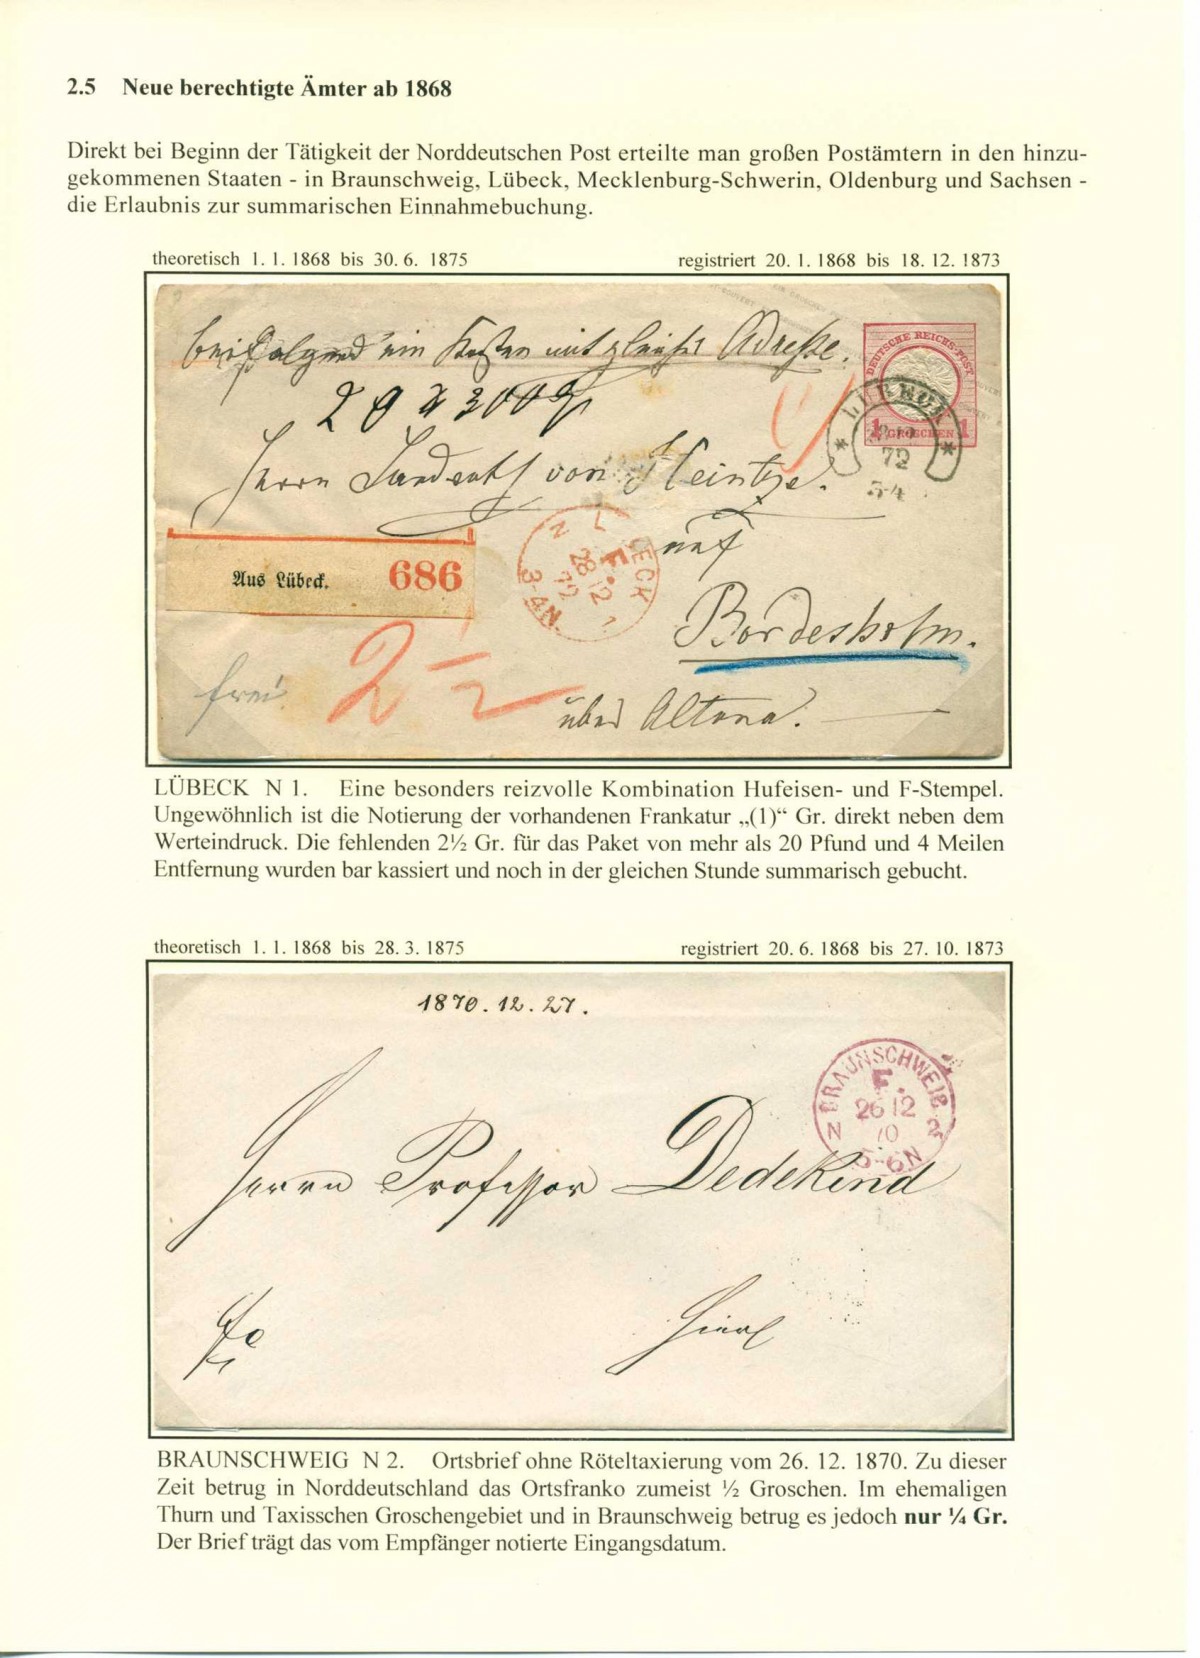 2.5 Neue berechtigte Ämter ab 1868
Direkt bei Beginn der Tätigkeit der Norddeutschen Post erteilte man großen Postämtern in den hinzu-
gekommenen Staaten - in Braunschweig, Lübeck, Mecklenburg-Schwerin, Oldenburg und Sachsen -
die Erlaubnis zur summarischen Einnahmebuchung.
theoretisch 1. 1. 1868 bis 30. 6. 1875 registriert 20. 1. 1868 bis 18. 12. 1873
ein mit Adresse.
DEUTSCHE REICHS-POST
1 GROSCHEN 1
LÜBECK
72
3-4
Herrn von
auf
Aus Lübeck. 686
N L ECK 1
F.
28 12
72
3-4N.
Bordesholm.
frei 2½
über Altona.
LÜBECK N 1. Eine besonders reizvolle Kombination Hufeisen- und F-Stempel.
Ungewöhnlich ist die Notierung der vorhandenen Frankatur „(1)“ Gr. direkt neben dem
Werteindruck. Die fehlenden 2½ Gr. für das Paket von mehr als 20 Pfund und 4 Meilen
Entfernung wurden bar kassiert und noch in der gleichen Stunde summarisch gebucht.
theoretisch 1. 1. 1868 bis 28. 3. 1875 registriert 20. 6. 1868 bis 27. 10. 1873
1870. 12. 27.
BRAUNSCHWEIG
F.
26 12
N 70 2
5-6N
Herrn Professor Dedekind
Hier
BRAUNSCHWEIG N 2. Ortsbrief ohne Röteltaxierung vom 26. 12. 1870. Zu dieser
Zeit betrug in Norddeutschland das Ortsfranko zumeist ½ Groschen. Im ehemaligen
Thurn und Taxisschen Groschengebiet und in Braunschweig betrug es jedoch nur ¼ Gr.
Der Brief trägt das vom Empfänger notierte Eingangsdatum.